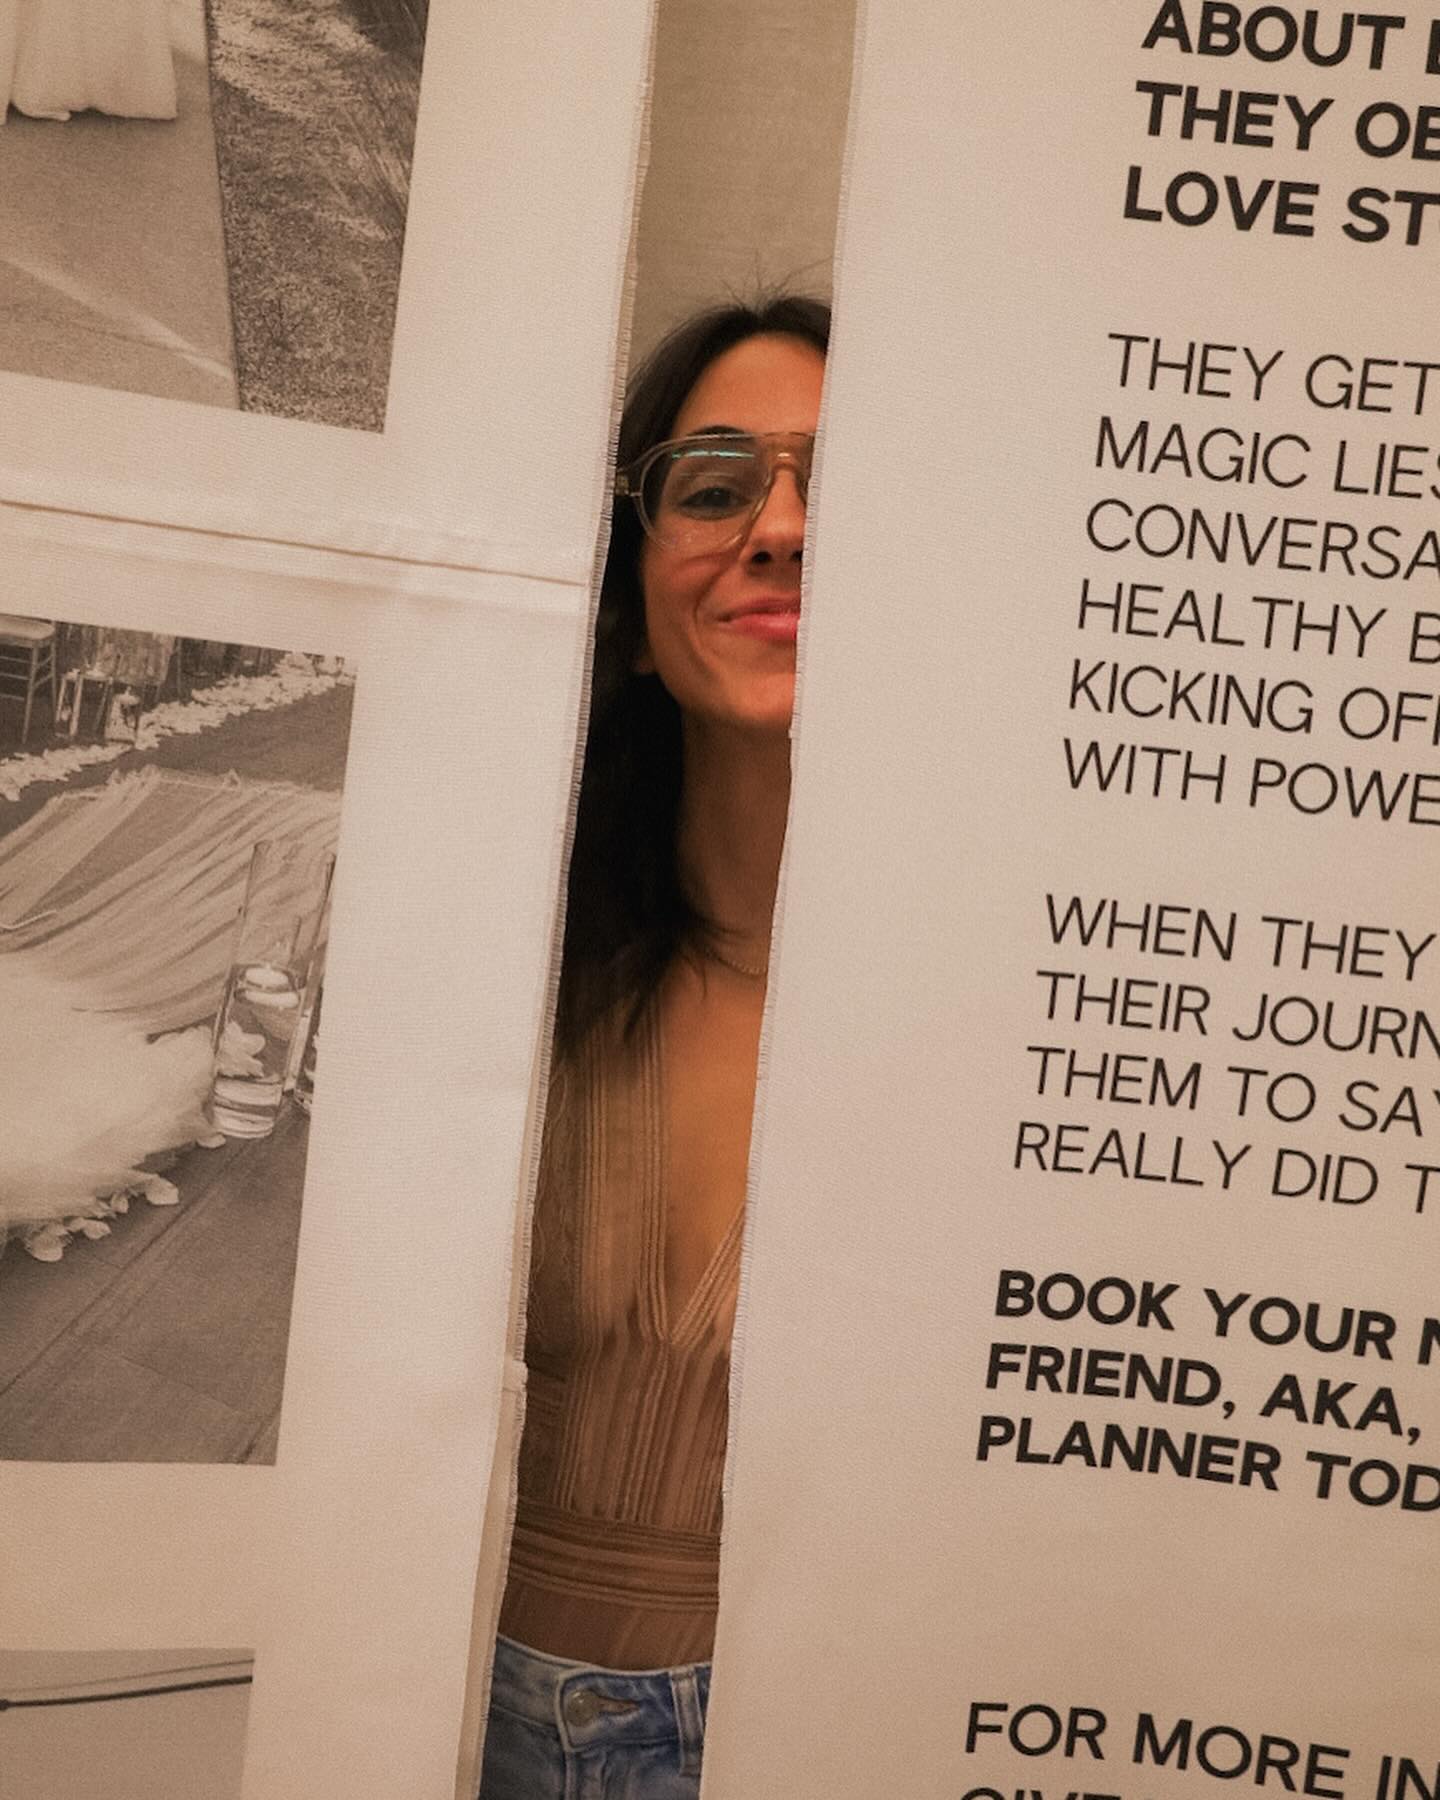 ABOUT
THEY
LOVE
THEY GET
MAGIC
CONVERSA
HEALTHY B
KICKING
WITH
WHEN THEY
THEIR JOURN
THEM TO SAY
REALLY DID T
BOOK YOUR
FRIEND, AKA,
PLANNER TOD
FOR MORE IN